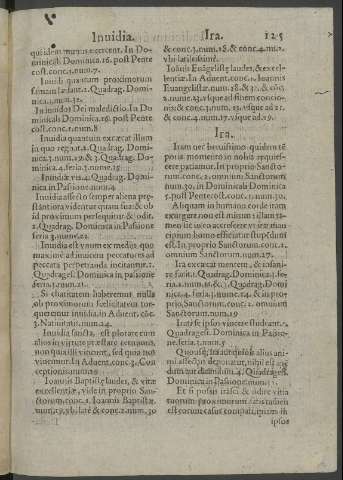 Inuidia. Ira. 125
qui idem munus exercent. In Do-
minicali Dominica.16. post Pente
cost.conc.1.num.7.
Inuidi quantum proximorum
famam lædant.1.Quadrag. Domi-
nica.1.num.32.
Inuidorum Dei maledictio. In Do
minicali Dominica.16. post Pente
cost.conc.1.num.8
Inuidia quantum excæcat illum
in quo regnat.1.Quadrag. Domi-
nica.3.num.19.& 3.Quadrag. Do-
minica.4.feria.3.nume.15
Inuidiæ vis.4.Quadrag. Domi-
nica in Passione.num.4
Inuidia affecto semper aliena præ-
stantiora videntur quam sua: & ob
id proximum persequitur & odit.
2.Quadrag. Dominica in Passione
feria 3.nume.22
Inuidia est vnum ex mediis quo
maxime ad inducens peccatores ad
peccata perpetranda incitantur.2.
Quadrages. Dominica in passione
feria.3.num.21.
Si charitatem haberemus nulla
ob proximorum fœlicitatem tor-
queremur inuidia. In Aduent.conc.
3.Natiuitat.num.24.
Inuidia sancta, est pilotare cum
aliis in virtute præstare cernimus,
non quia illi vincunt, sed quia nos
vincimur. In Aduent.conc.3.Con
ceptionis.num.19
Ioannis Baptistę laudes, & vitæ
excellentiæ, vide in proprio Sanc-
torum.conc.1. Ioannis Baptistæ.
num.17.vbi late & conc.2.num.30
& conc.3.num.18.& conc.4.nu.2.
vbi latissime.
Ioānis Euāgelistę laudes, & excel-
lentiæ. In Aduent.conc.1. Ioannis
Euangelistæ.num.28.& 31. & conc.
2.nume.23.vsque ad finem concio-
nis: & conc.3.num.15. vsque ad 21.
& conc.4.num.13.vsque ad 19.
Ira.
Iram nec breuissimo quidem tē
poris momento in nobis requies-
cere patiamur. In proprio Sancto-
rum.conc.2. omnium Sanctorum
num.30. in Dominicali Dominica
5.post Pentecost.conc.1.num.30.
Aliquam in humano corde iram
exurgere non est mirum: illam ta-
men
cipium hominis efficitur stupēdum
est. In proprio Sanctorum.conc.2.
omnium Sanctorum num.27
Ira excæcat mentem, & insani-
re facit.1.Quadrag. Dominica.3.fe-
ria.2.num.15.& 3.Quadrag. Domi
nica.4.feria.3.num.14.& in pro-
prio, Sanctorum.conc.2. omnium
Sanctorum.num.19
Irati se ipsos vincere studeant.2.
Quadrages. Dominica in Passio-
ne.feria.5.num.9
Quousq; irati
mi affectū deponatur, nihil est age
dum quæ admisit.4.Quadrages.
Dominica in Passione.num.13
Et si possit irasci & odire vitia
nostrorum proximorum satis tamen
est eorum casus compati, quam in
ipsos